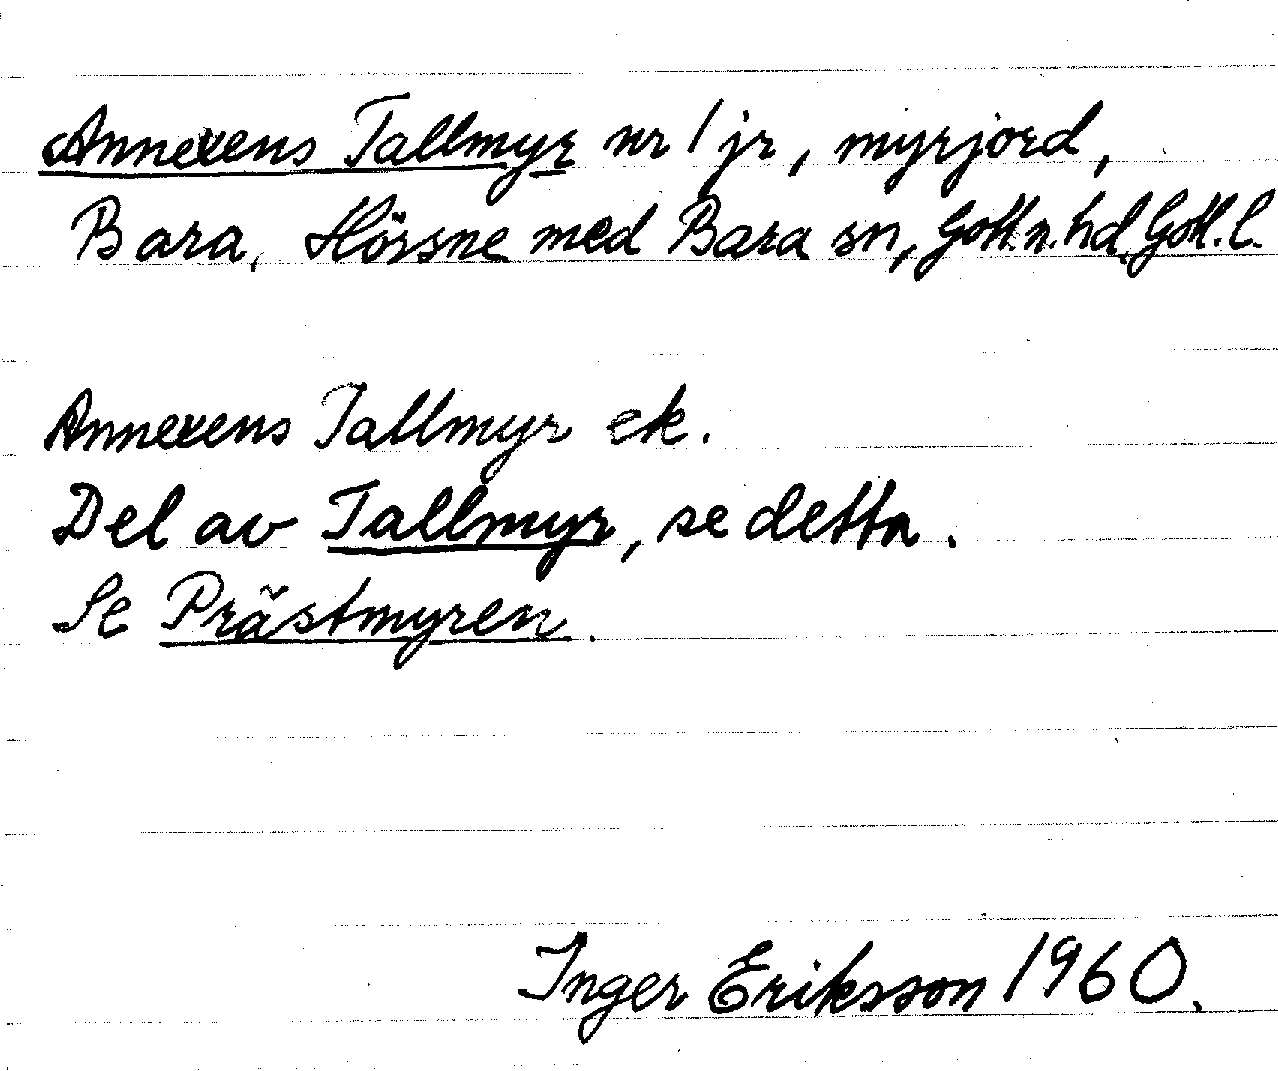 Annexens Tallmyr nr 1 jr, myrjord,
Bara, Hörsne med Bara sn, Gotl.n.hd, Gotl.l.
Annexens Tallmyr ek.
Del av Tallmyr, se detta.
Se Prästmyren.
Inger Eriksson 1960.